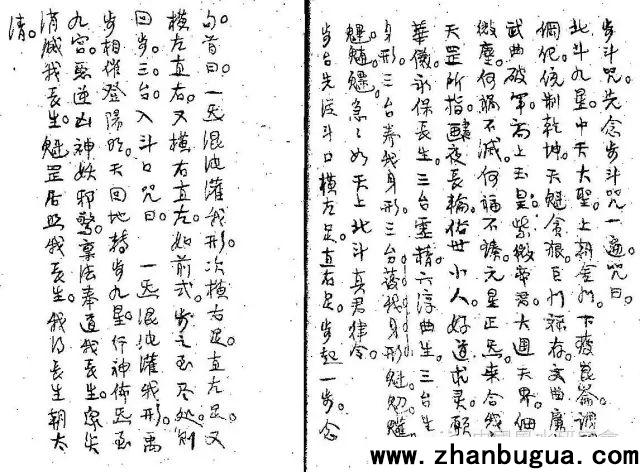 步斗咒。先念步斗咒一遍咒曰。
北斗九星。中天大聖。上朝金阙。下覆崑崙。調
綱纪。统制乾坤。天魁貪狼。巨门禄存。文曲廉
武曲破軍。高上玉皇。紫微帝君。大週天界。细
微塵。何災不滅。何福不臻。元皇正炁。來合我
天罡所指。晝夜長輪。俗世小人。好道求灵。願
華儀。永保長生。三台虛精。六淳曲生。三台生
身形。三台养我身形。三台護我身形。魁
魓魒。急急如天上北斗真君律令。
步台先從斗口橫左足直右足步起一步。念
句首曰。一炁混沌灌我形。次橫右足。直左足。又
橫左直右。又橫右直左。如前式。步之至尽处。则
回步。三台入斗口咒曰。一炁混沌灌我形。禹
步相催登陽明。天回地轉步九星。行神佈炁至
九宮。惡逆凶神妖邪驚。稟法奉道我長生。众災
消滅我長生。魁罡居臨我長生。我得長生朝太
清。
www.zhanbugua.com